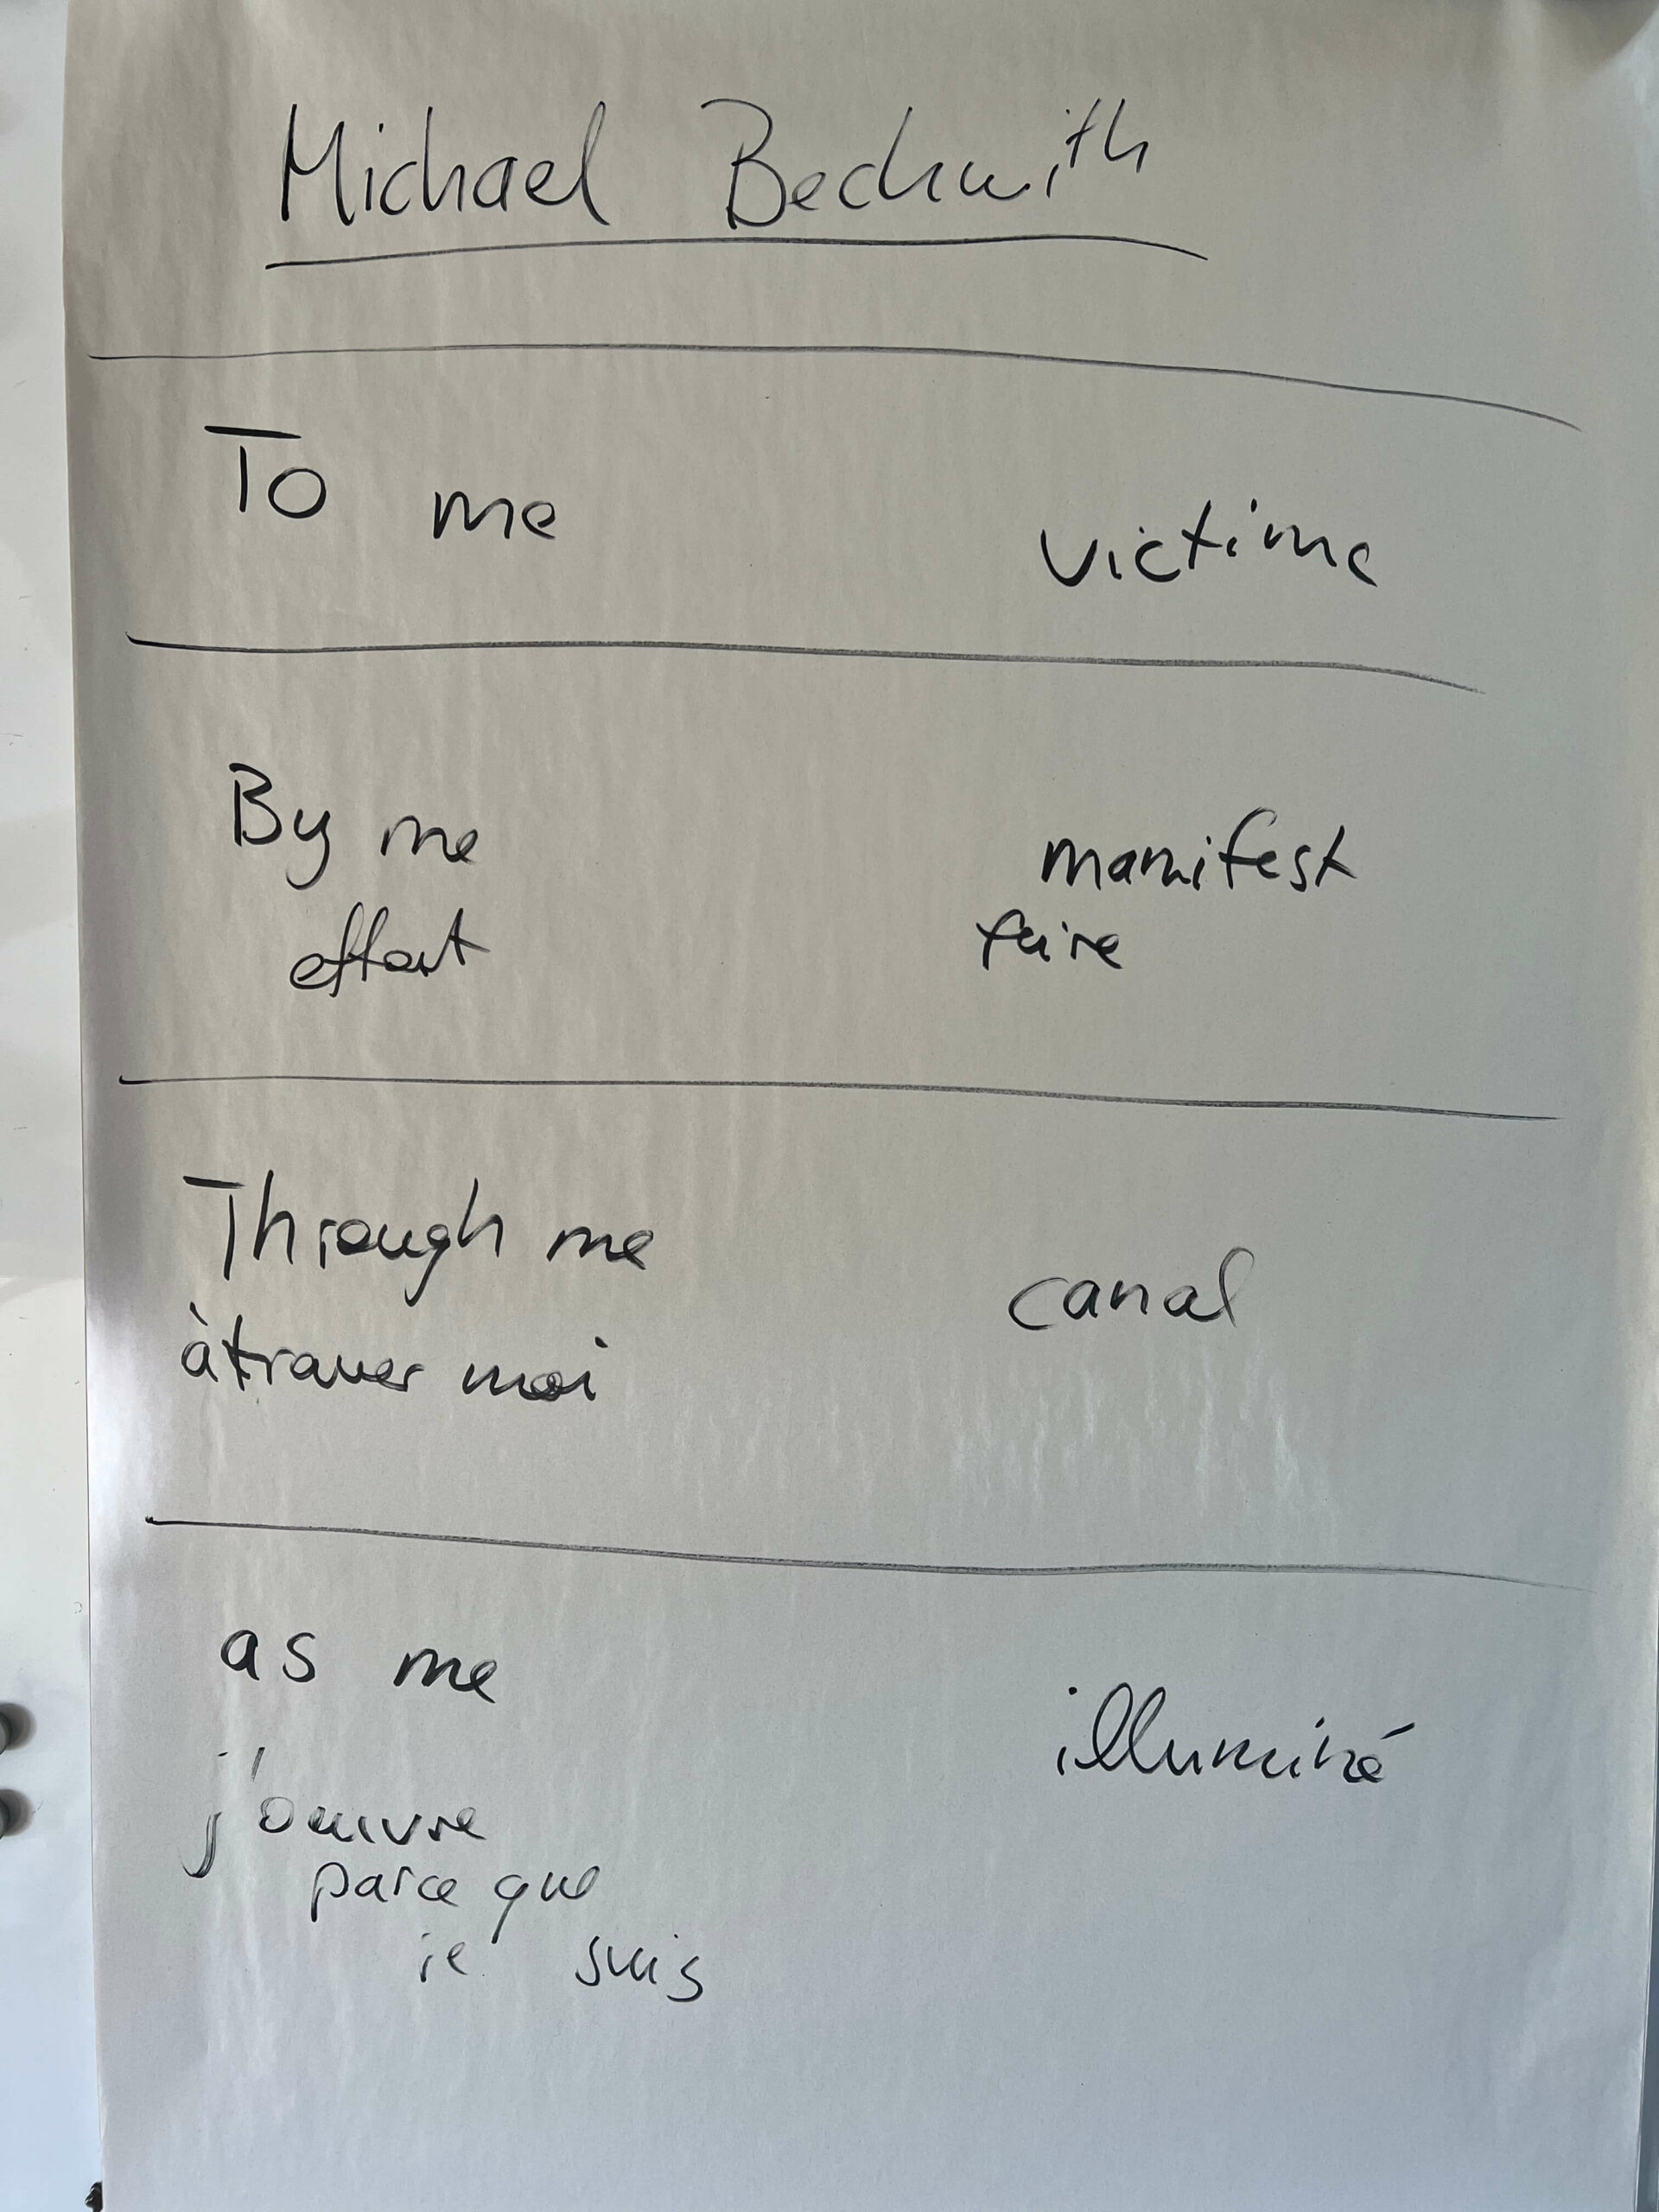 Michael Beckwith
To me victime
By me manifest
effort faire
Through me canal
à traver moi
as me illuminé
j'ouvre
parce que
je suis